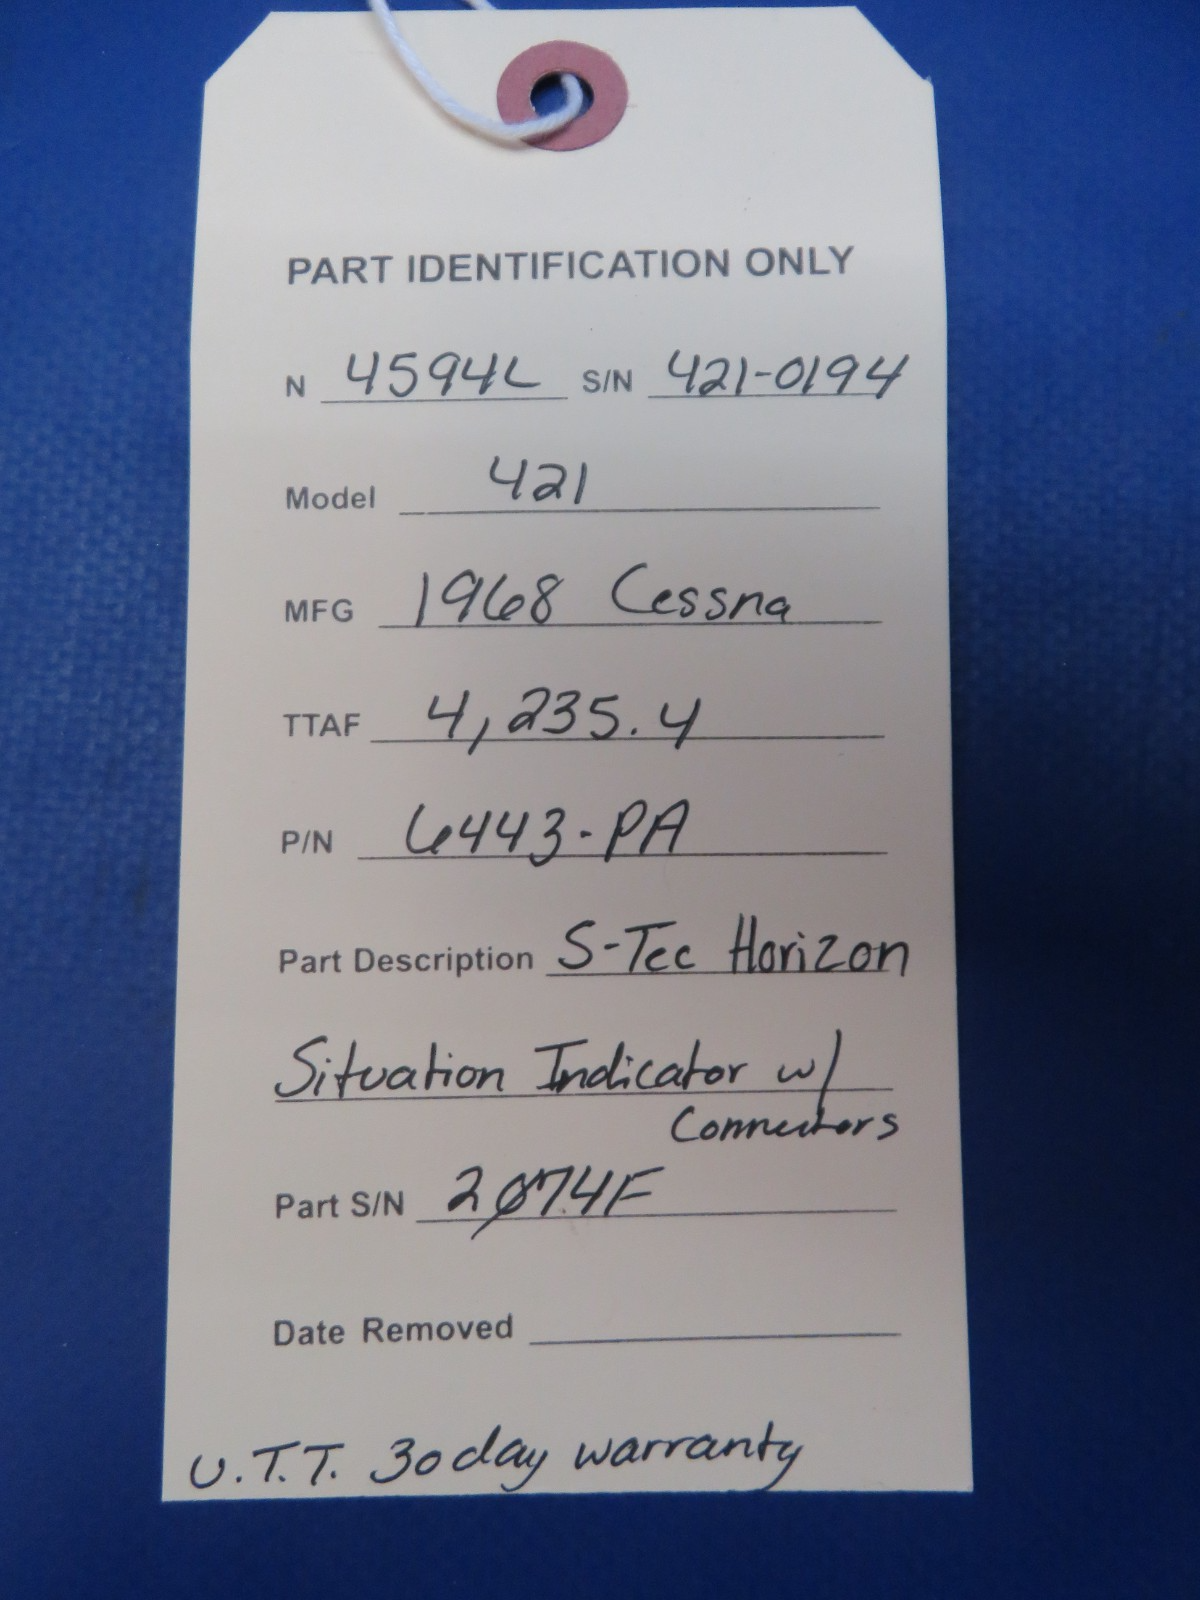 PART IDENTIFICATION ONLY
N 4594L S/N 421-0194
Model 421
MFG 1968 Cessna
TTAF 4,235.4
P/N 6443-PA
Part Description S-Tec Horizon
Situation Indicator w/
Connectors
Part S/N 2074F
Date Removed
U.T.T. 30 day warranty